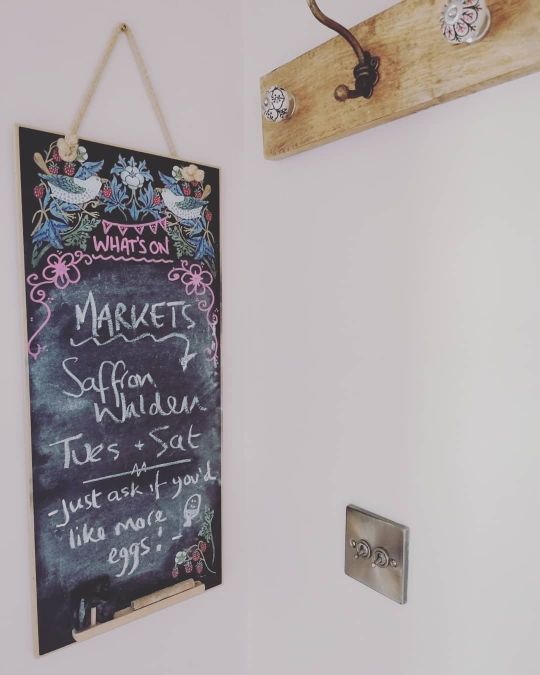 WHAT'S ON
MARKETS
Saffron
Walden
Tues + Sat
- Just ask if you'd
like more
eggs! -